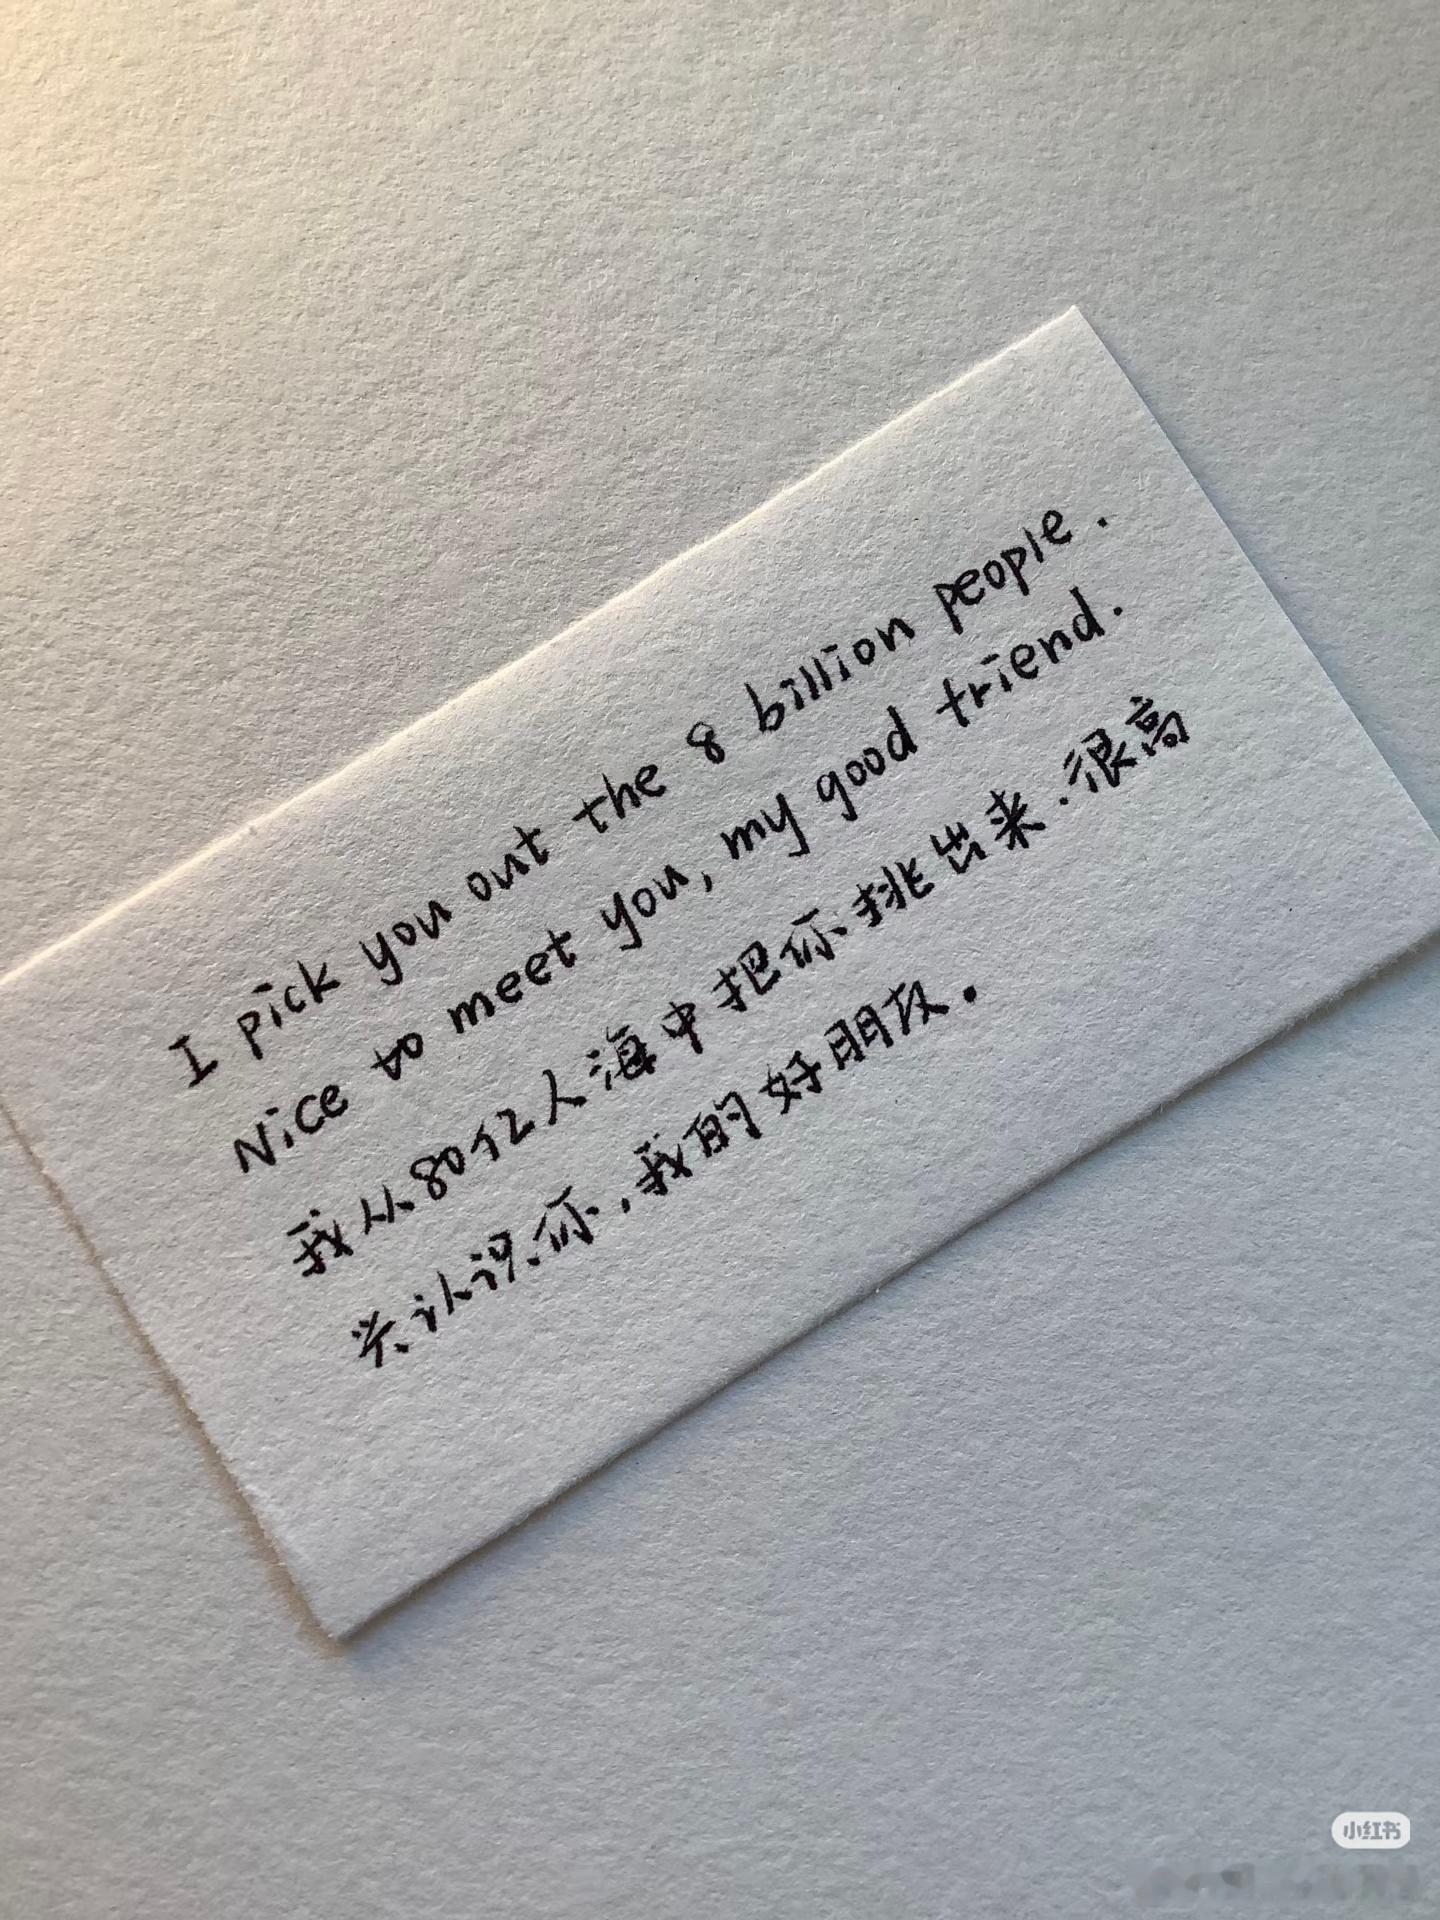 I pick you out the 8 billion people.
Nice to meet you, my good friend.
我从80亿人海中把你挑出来.很高
兴认识你,我的好朋友.
小红书